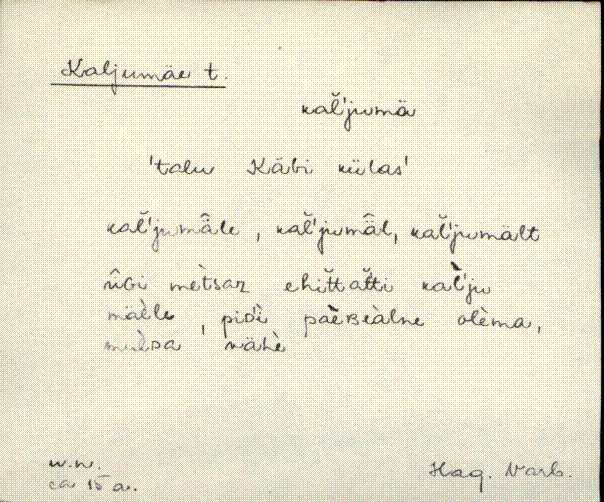 Kaljumäe t.
kal̆'jumä
'talu Käbi külas'
kal̆'jumä̂le, kal̆'jumä̂l, kal̆'jumält
ûƃi mètsar ehit̆tat̆ti kal̀'ju
mäèle, piƌi paèʙeàlne olèma,
mul̀da vähè
w.w.
ca 15 a.
Hag. Varb.